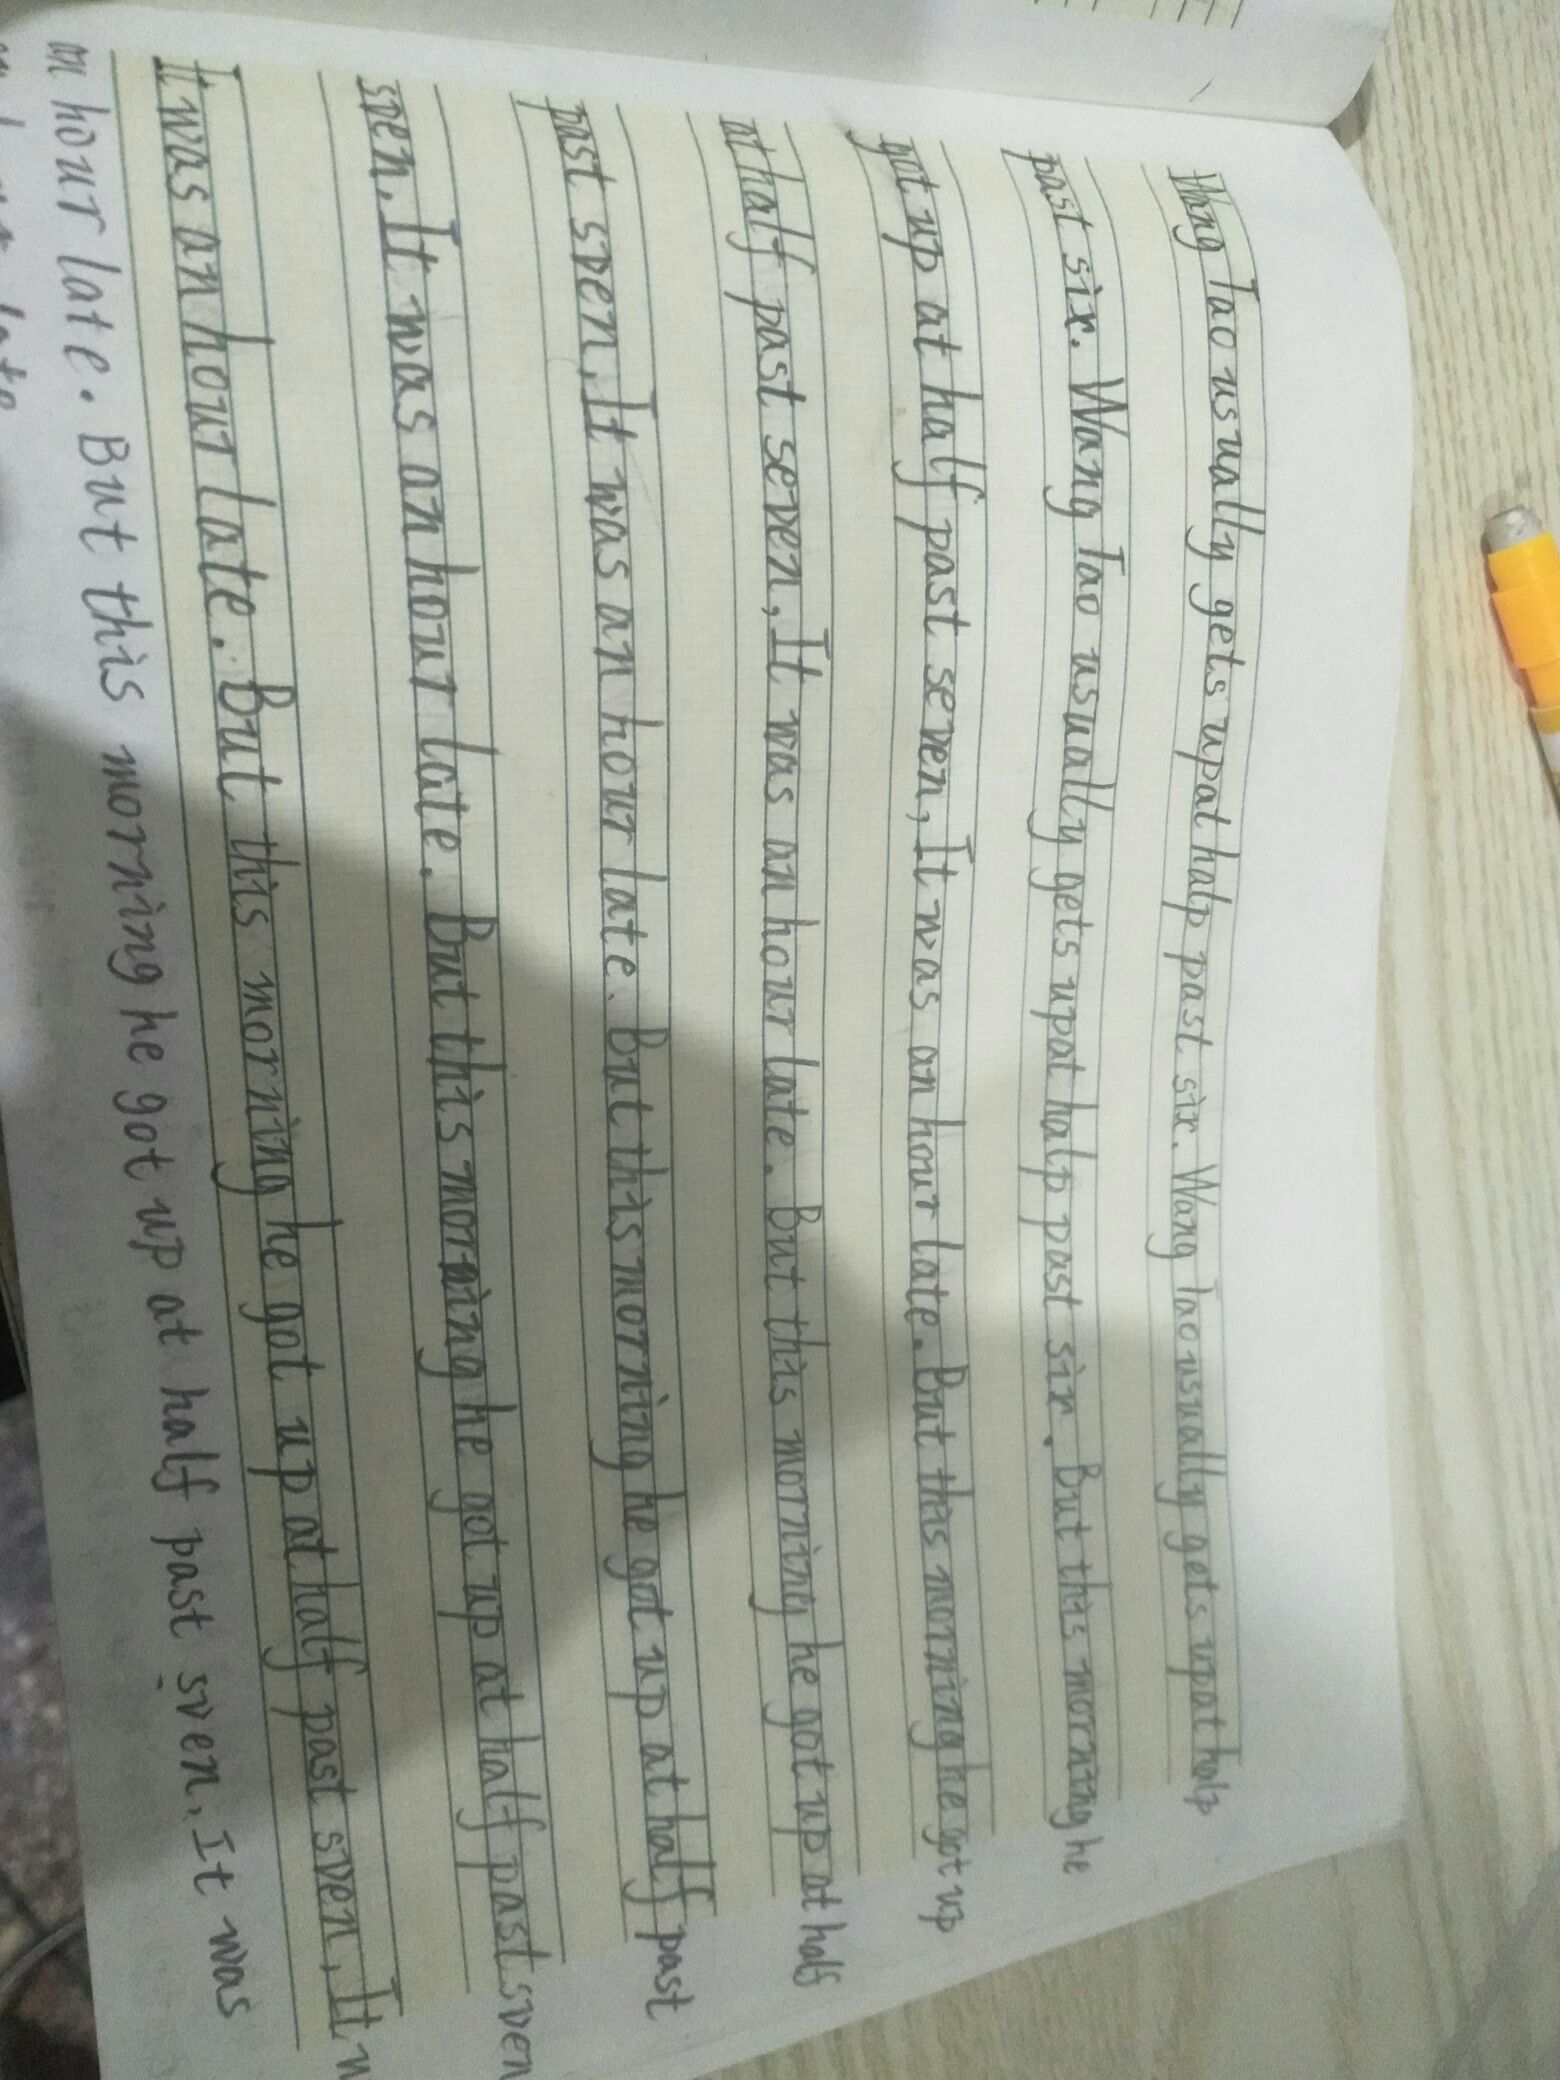 Wang Tao usually gets up at halp past six. Wang Tao usually gets up at halp
past six. Wang Tao usually gets up at halp past six. But this morning he
got up at half past seven, It was an hour late. But this morning he got up
at half past seven, It was an hour late. But this morning he got up at half
past sven, It was an hour late. But this morning he got up at half past
sven. It was an hour late. But this morning he got up at half past sven
It was an hour late. But this morning he got up at half past sven, It w
an hour late. But this morning he got up at half past sven. It was
late